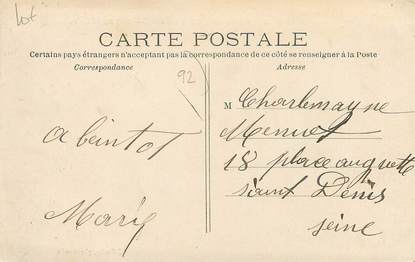 Lot
CARTE POSTALE
Certains pays étrangers n'acceptant pas la correspondance de ce côté se renseigner à la Poste
Correspondance
Adresse
92
a beintot
Marie
M Charlemayne
Menuet
18 place auguette
saint Denis
seine